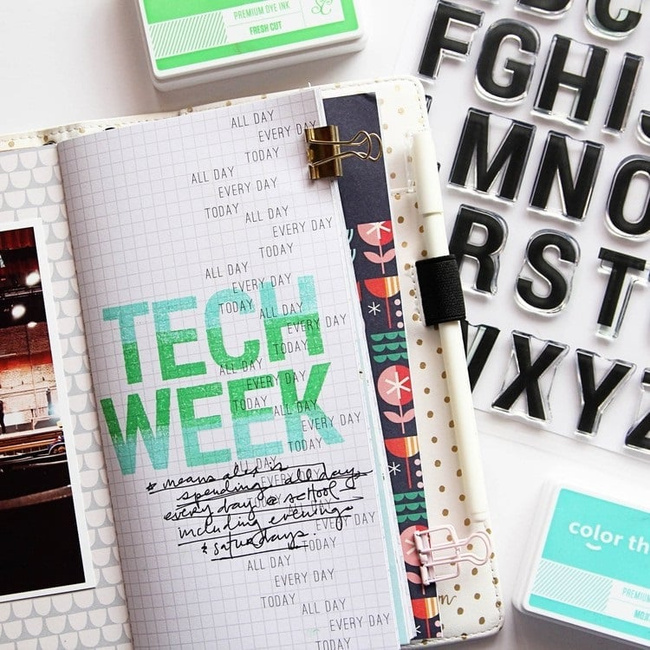 PREMIUM DYE INK
FRESH CUT
F G H I J
M N O
R S T
X Y Z
ALL DAY
EVERY DAY
TODAY
ALL DAY
EVERY DAY
TODAY
ALL DAY
EVERY DAY
TODAY
ALL DAY
EVERY DAY
TODAY
ALL DAY
EVERY DAY
TODAY
ALL DAY
EVERY DAY
TODAY
ALL DAY
EVERY DAY
TODAY
TECH
WEEK
* means is
spending all day
every day @ school
including evenings
& saturdays.
ALL DAY
EVERY DAY
TODAY
ALL DAY
EVERY DAY
TODAY
ALL DAY
EVERY DAY
TODAY
color th
PREMIUM